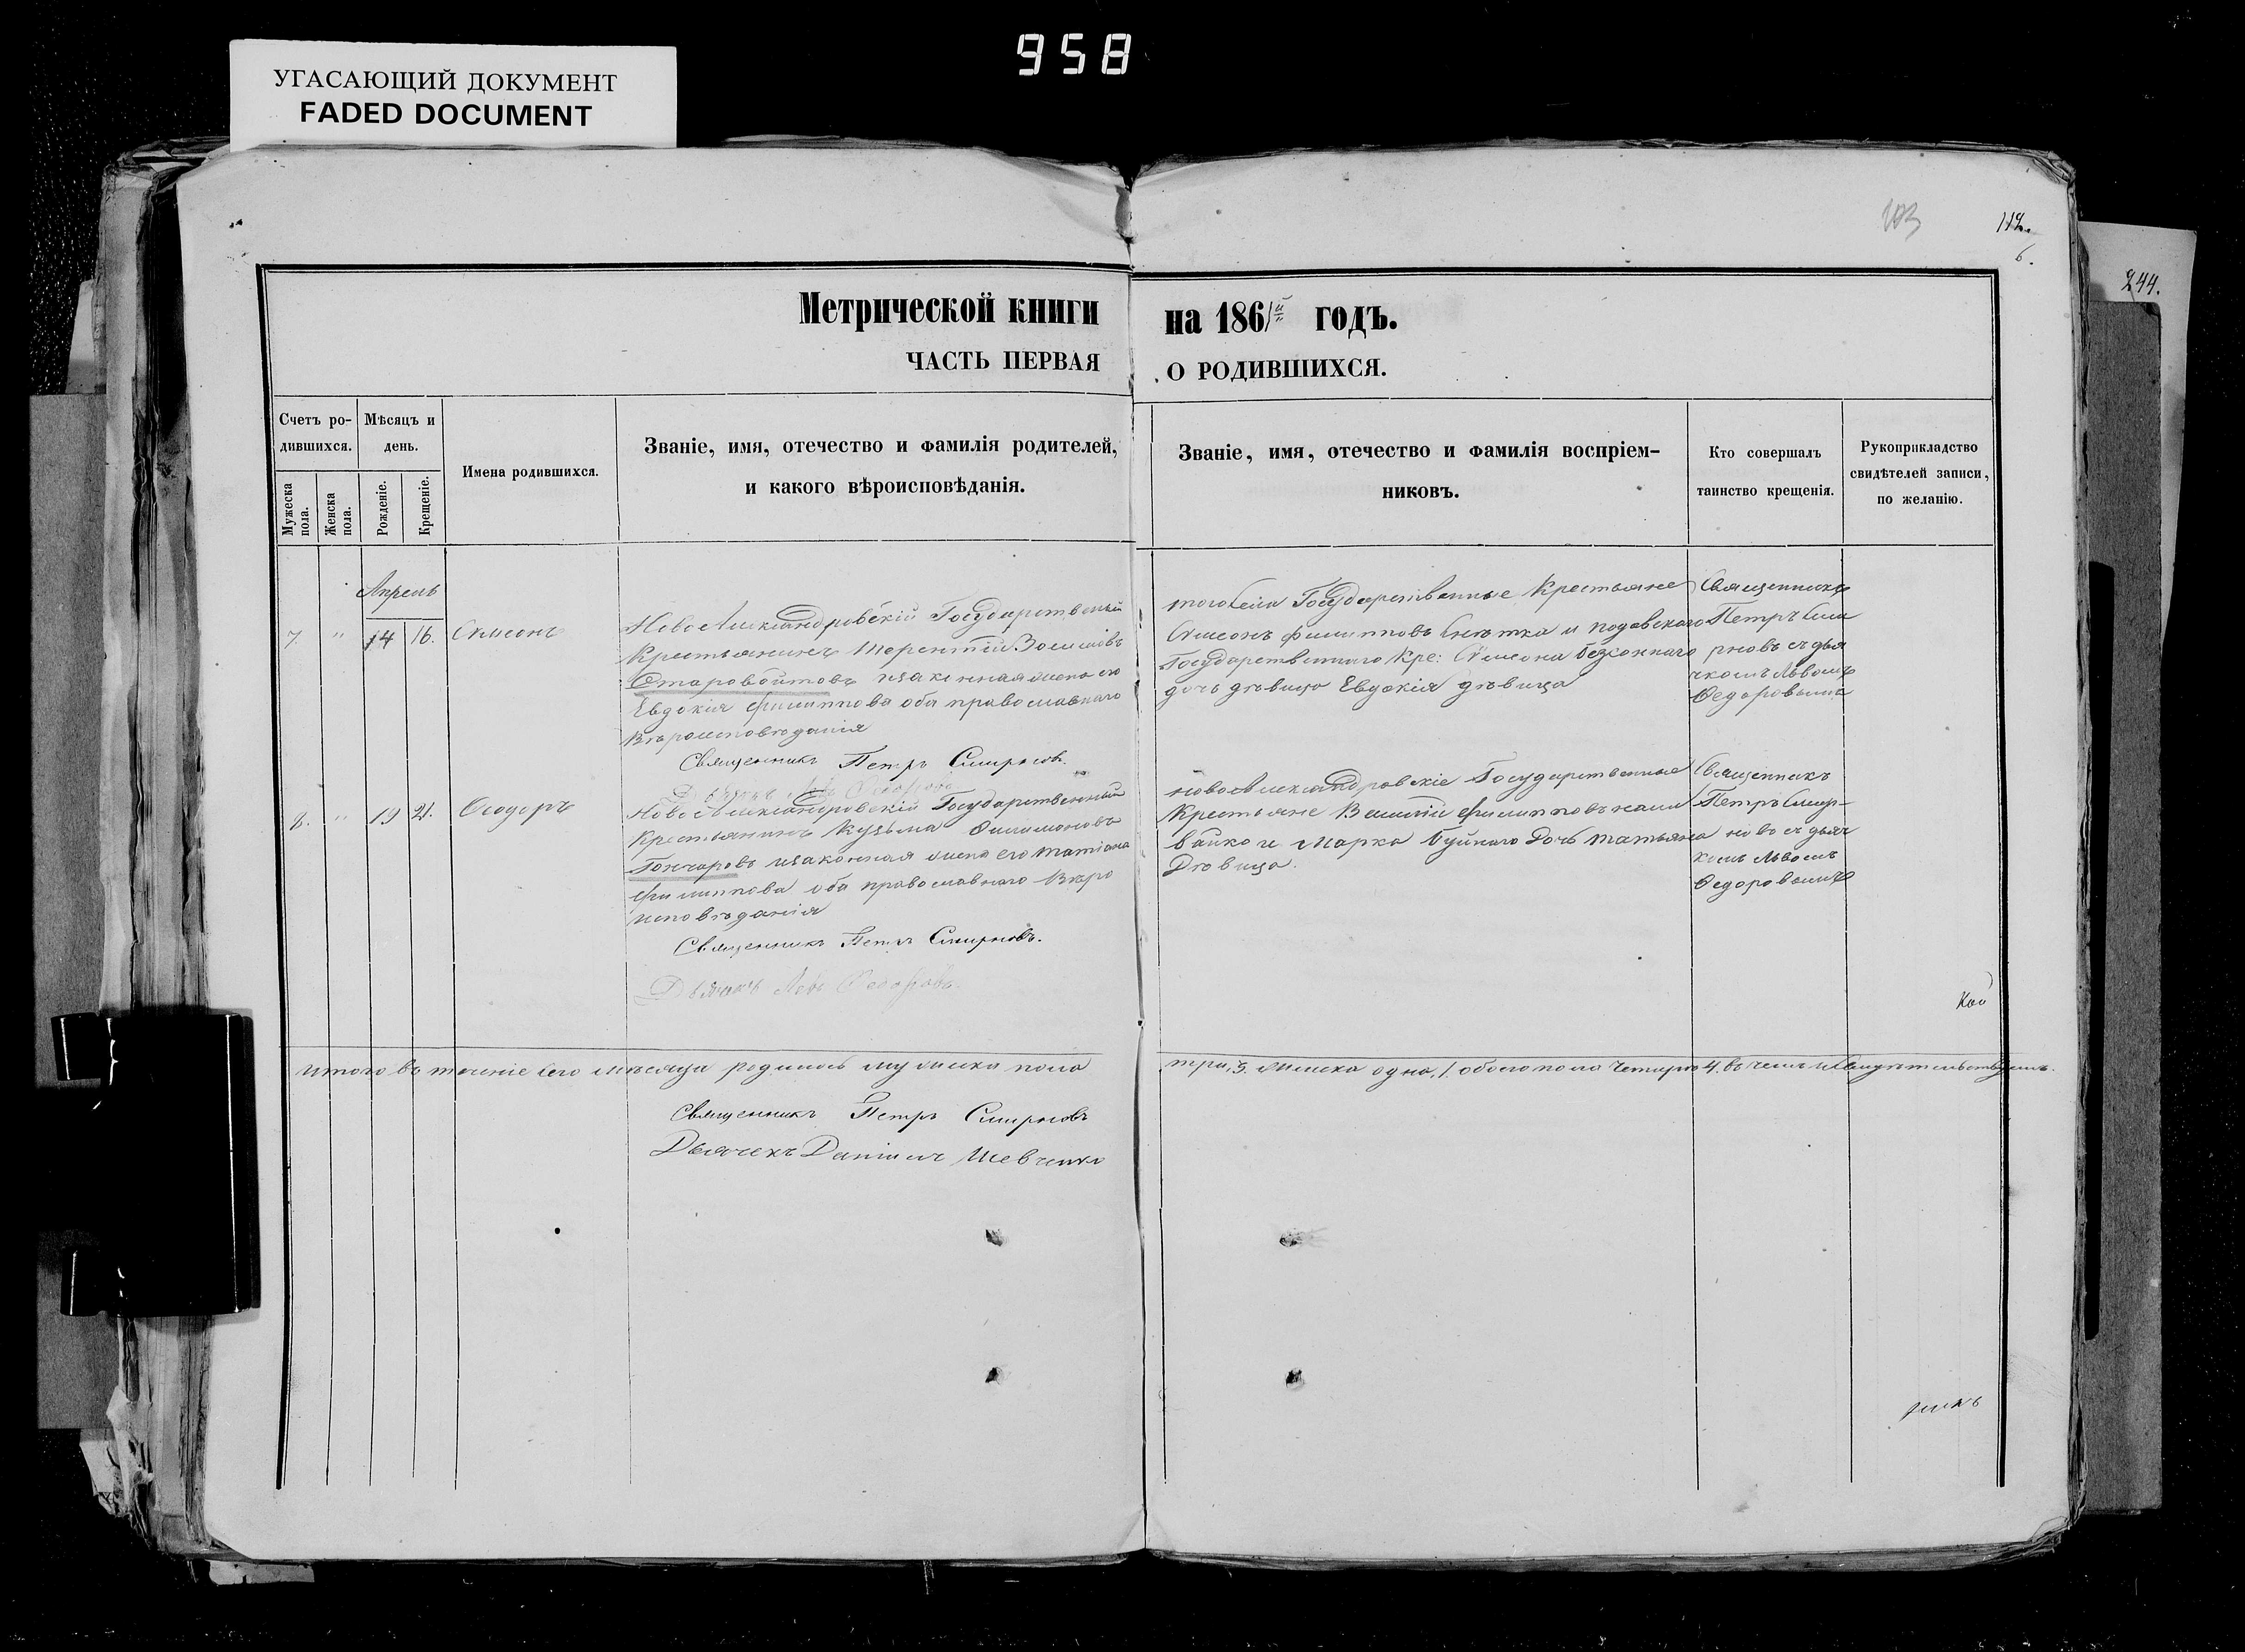 958
УГАСАЮЩИЙ ДОКУМЕНТ
FADED DOCUMENT
103
112.
6.
244.
Метрической книги на 1861й годъ.
ЧАСТЬ ПЕРВАЯ О РОДИВШИХСЯ.
Счетъ ро-
дившихся.
Мѣсяцъ и
день.
Мужеска
пола.
Женска
пола.
Рожденіе.
Крещеніе.
Имена родившихся.
Званіе, имя, отечество и фамилія родителей,
и какого вѣроисповѣданія.
Званіе, имя, отечество и фамилія воспріем-
никовъ.
Кто совершалъ
таинство крещенія.
Рукоприкладство
свидѣтелей записи,
по желанію.
Апрель
7. " 14 16. Симеонъ
Новоалександровскій Государственный
Крестьянинъ Терентій
Старовойтовъ изаконная жена его
Евдокія Филиппова оба православнаго
Вѣроисповѣданія
Священникъ Петръ Смирновъ.
Дьячекъ Левъ Федоровъ
того села Государственные Крестьяне
Симеонъ Филипповъ и
Государственнаго Кре: Симеона
дочь дѣвица Евдокія дѣвица
Священникъ
Петръ Сми
рновъ съ дья
чкомъ Львомъ
Федоровымъ
8. " 19 21. Ѳеодоръ
Новоалександровскій Государственный
Крестьянинъ Кузьма Филимоновъ
Гончаровъ изаконная жена его Татіана
Филиппова оба православнаго Вѣро
исповѣданія
Священникъ Петръ Смирновъ.
Дьячекъ Левъ Федоровъ
новоалександровскіе Государственные
Крестьяне Филипповъ
и Марка Буйнаго Дочь Татьяна
Дѣвица.
Священникъ
Петръ Смир-
новъ съ дьяч
комъ Львомъ
Федоровымъ
Итого въ теченіе сего мѣсяца родилось мужеска пола
три, 3. женска одна, 1. обоего пола четыре 4. въ чемъ и свидѣтельствуемъ.
Священникъ Петръ Смирновъ
Дьячекъ Даніилъ Шевченко